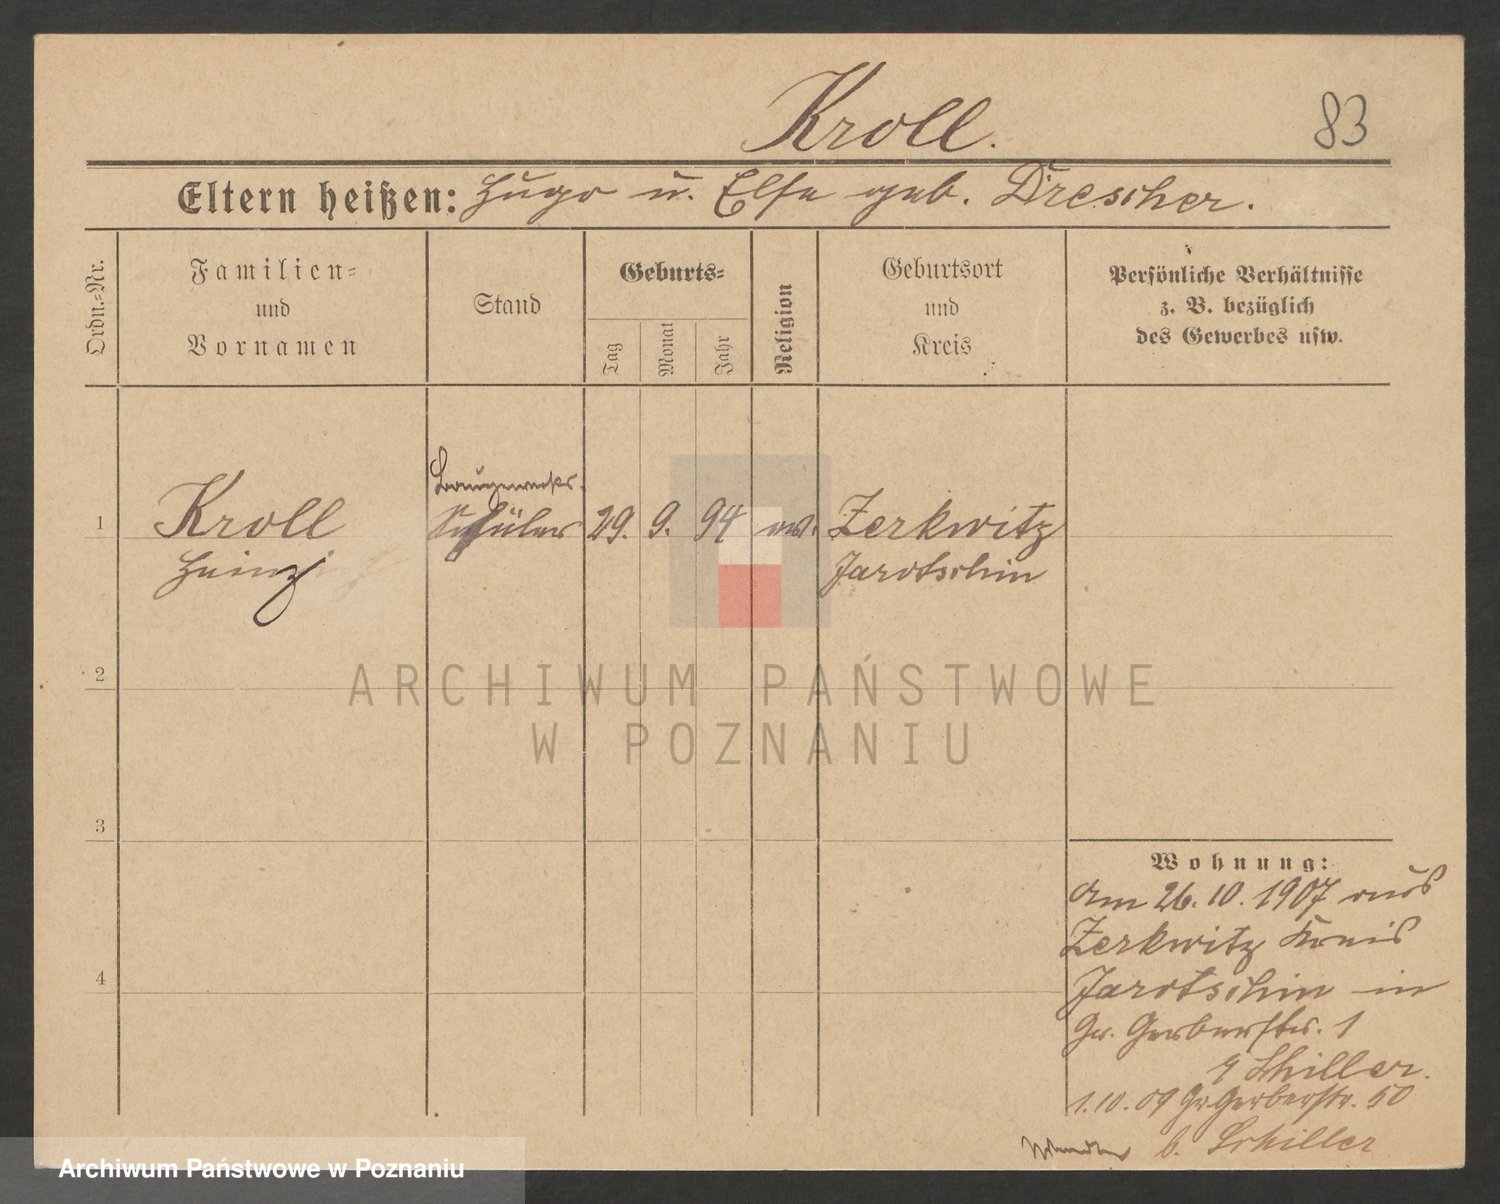 Kroll.
83
Eltern heißen: Hugo u. Else geb. Drescher.
Ordn.-Nr.
Familien-
und
Vornamen
Stand
Geburts-
Tag
Monat
Jahr
Religion
Geburtsort
und
Kreis
Persönliche Verhältnisse
z. B. bezüglich
des Gewerbes usw.
Baugewerks-
1 Kroll Schüler 29. 9. 94 ev. Zerkwitz
Heinz Jarotschin
2
ARCHIWUM PAŃSTWOWE
W POZNANIU
3
Wohnung:
Am 26.10.1907 aus
Zerkwitz Kreis
4
Jarotschin in
Gr. Gerberstr. 1
Schiller.
1.10.09 Gr. Gerberstr. 50
b. Schiller
Archiwum Państwowe w Poznaniu